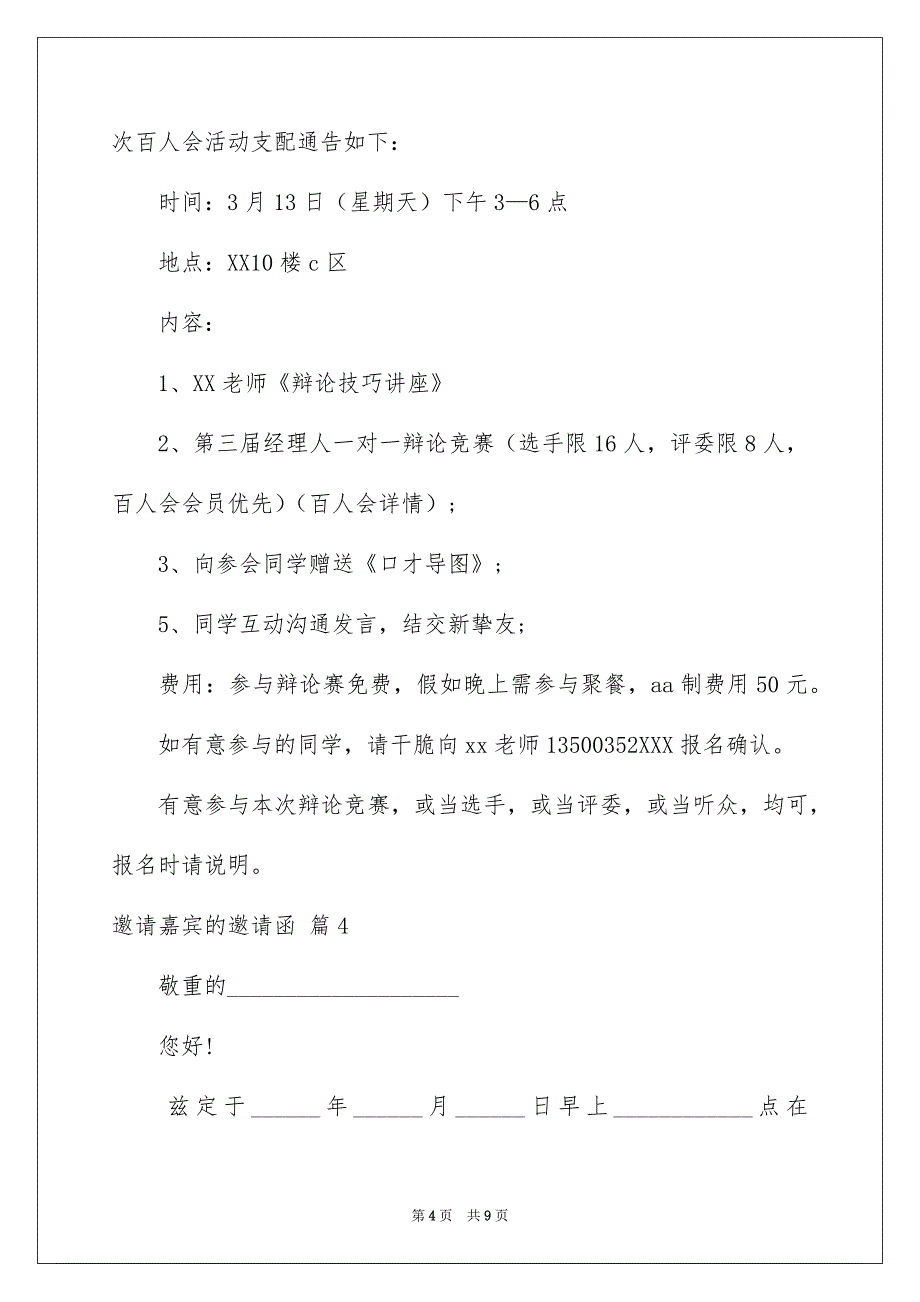 次百人会活动支配通告如下：
时间：3月13日（星期天）下午3—6点
地点：XX10楼c区
内容：
1、XX老师《辩论技巧讲座》
2、第三届经理人一对一辩论竞赛（选手限16人，评委限8人，
百人会会员优先）（百人会详情）；
3、向参会同学赠送《口才导图》；
5、同学互动沟通发言，结交新挚友；
费用：参与辩论赛免费，假如晚上需参与聚餐，aa制费用50元。
如有意参与的同学，请干脆向xx老师13500352XXX报名确认。
有意参与本次辩论竞赛，或当选手，或当评委，或当听众，均可，
报名时请说明。
邀请嘉宾的邀请函 篇4
敬重的____________________
您好!
兹定于______年______月______日早上____________点在
第4页 共9页